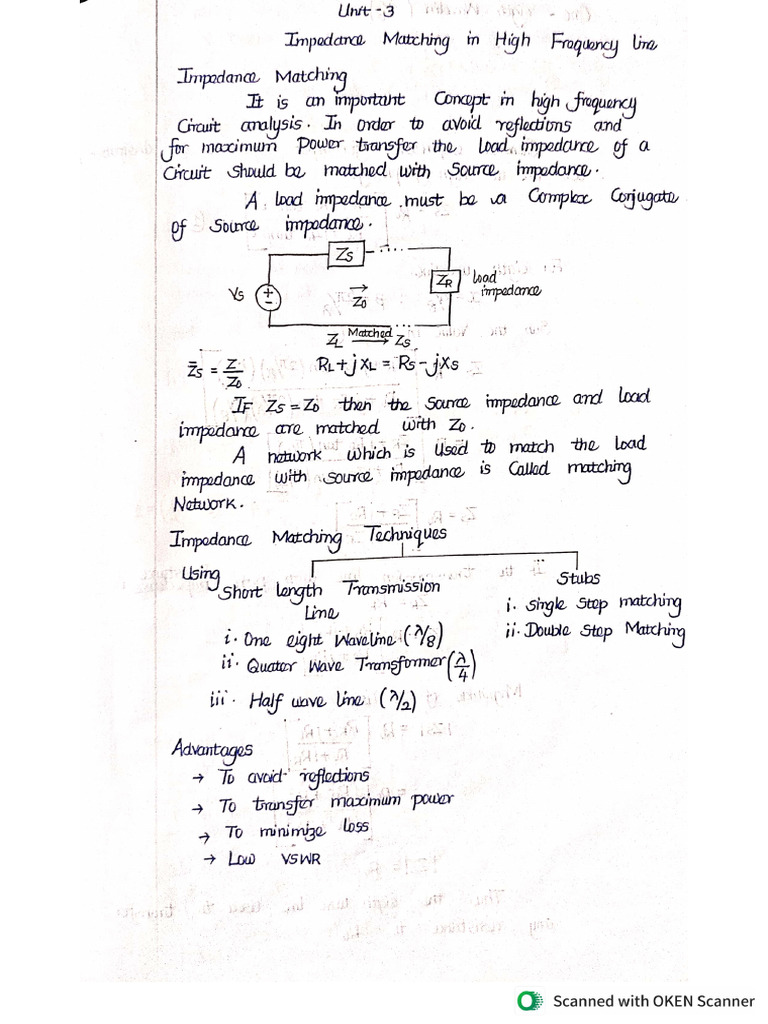 Unit-3
Impedance Matching in High Frequency line
Impedance Matching
It is an important Concept in high frequency
Circuit analysis. In order to avoid reflections and
for maximum Power transfer the Load impedance of a
Circuit should be matched with Source impedance.
A load impedance must be a Complex Conjugate
of Source impedance.
ZS
VS
+
-
Z0
ZR
load
impedance
ZL Matched→ ZS
Z̄S = Z/Z0
RL+jXL = RS-jXS
IF ZS = Z0 then the source impedance and load
impedance are matched with Z0.
A network which is used to match the load
impedance with source impedance is Called matching
Network.
Impedance Matching Techniques
Using
Short length Transmission
Line
i. One eight Waveline (λ/8)
ii. Quater Wave Transformer (λ/4)
iii. Half wave line (λ/2)
Stubs
i. Single Step matching
ii. Double Step Matching
Advantages
→ To avoid reflections
→ To transfer maximum power
→ To minimize loss
→ Low VSWR
Scanned with OKEN Scanner